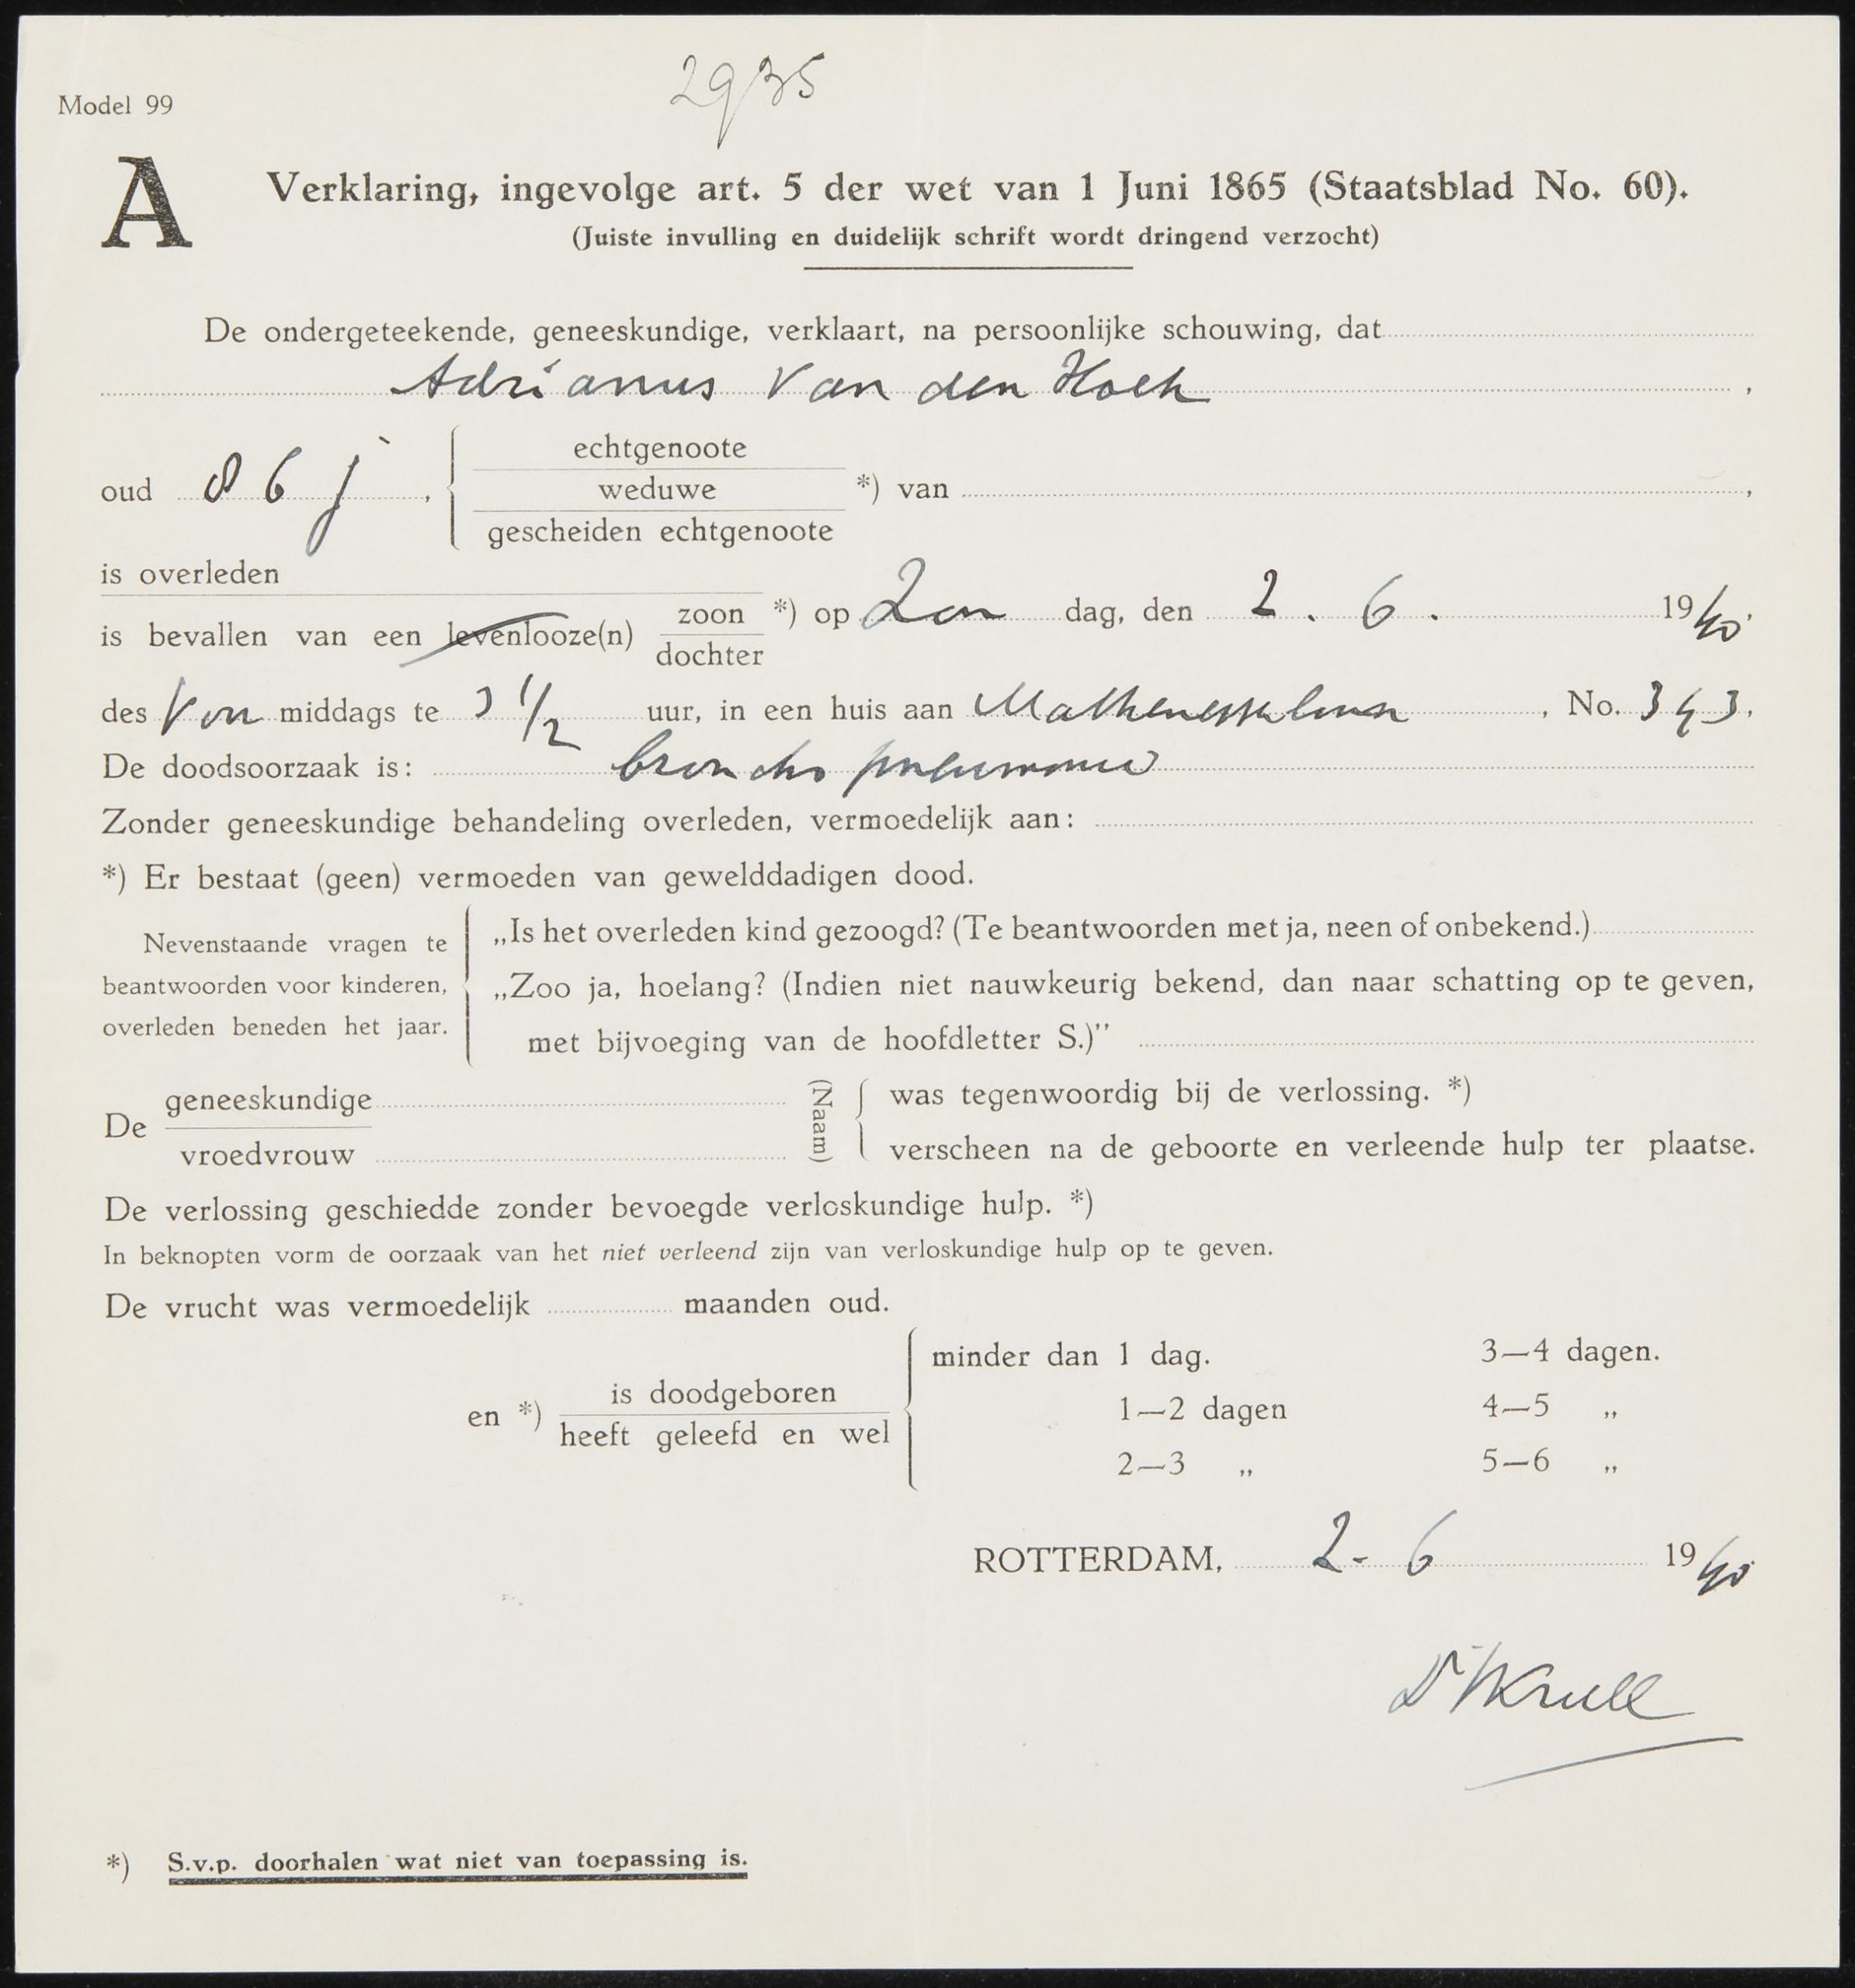 2935
Model 99
A
Verklaring, ingevolge art. 5 der wet van 1 Juni 1865 (Staatsblad No. 60).
(Juiste invulling en duidelijk schrift wordt dringend verzocht)
De ondergeteekende, geneeskundige, verklaart, na persoonlijke schouwing, dat
Adrianus Van den Hoek,
oud 86 j, echtgenoote weduwe gescheiden echtgenoote *) van ,
is overleden
is bevallen van een levenlooze(n) zoon dochter *) op Zon dag, den 2. 6. 1940.
des Voor middags te 3 1/2 uur, in een huis aan Mathenesserlaan, No. 343.
De doodsoorzaak is: broncho pneumonie
Zonder geneeskundige behandeling overleden, vermoedelijk aan:
*) Er bestaat (geen) vermoeden van gewelddadigen dood.
Nevenstaande vragen te
beantwoorden voor kinderen,
overleden beneden het jaar.
„Is het overleden kind gezoogd? (Te beantwoorden met ja, neen of onbekend.)
„Zoo ja, hoelang? (Indien niet nauwkeurig bekend, dan naar schatting op te geven,
met bijvoeging van de hoofdletter S.)”
De geneeskundige vroedvrouw (Naam)
was tegenwoordig bij de verlossing. *)
verscheen na de geboorte en verleende hulp ter plaatse.
De verlossing geschiedde zonder bevoegde verloskundige hulp. *)
In beknopten vorm de oorzaak van het niet verleend zijn van verloskundige hulp op te geven.
De vrucht was vermoedelijk maanden oud.
en *) is doodgeboren heeft geleefd en wel
minder dan 1 dag. 3—4 dagen.
1—2 dagen 4—5 „
2—3 „ 5—6 „
ROTTERDAM, 2-6 1940
Dr Krull
*) S.v.p. doorhalen wat niet van toepassing is.